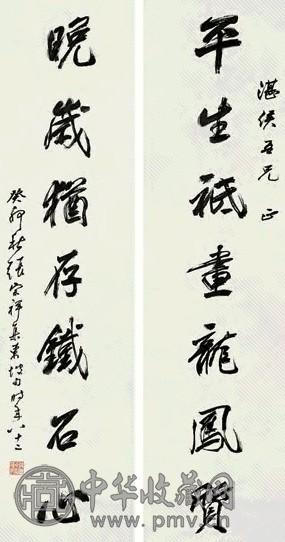 湛侯吾兄 正
平生祗畫龍鳳質
晚歲猶存鐵石心
癸卯秋張宗祥集東坡句時年八十二
中华收藏网
www.pmv.cn